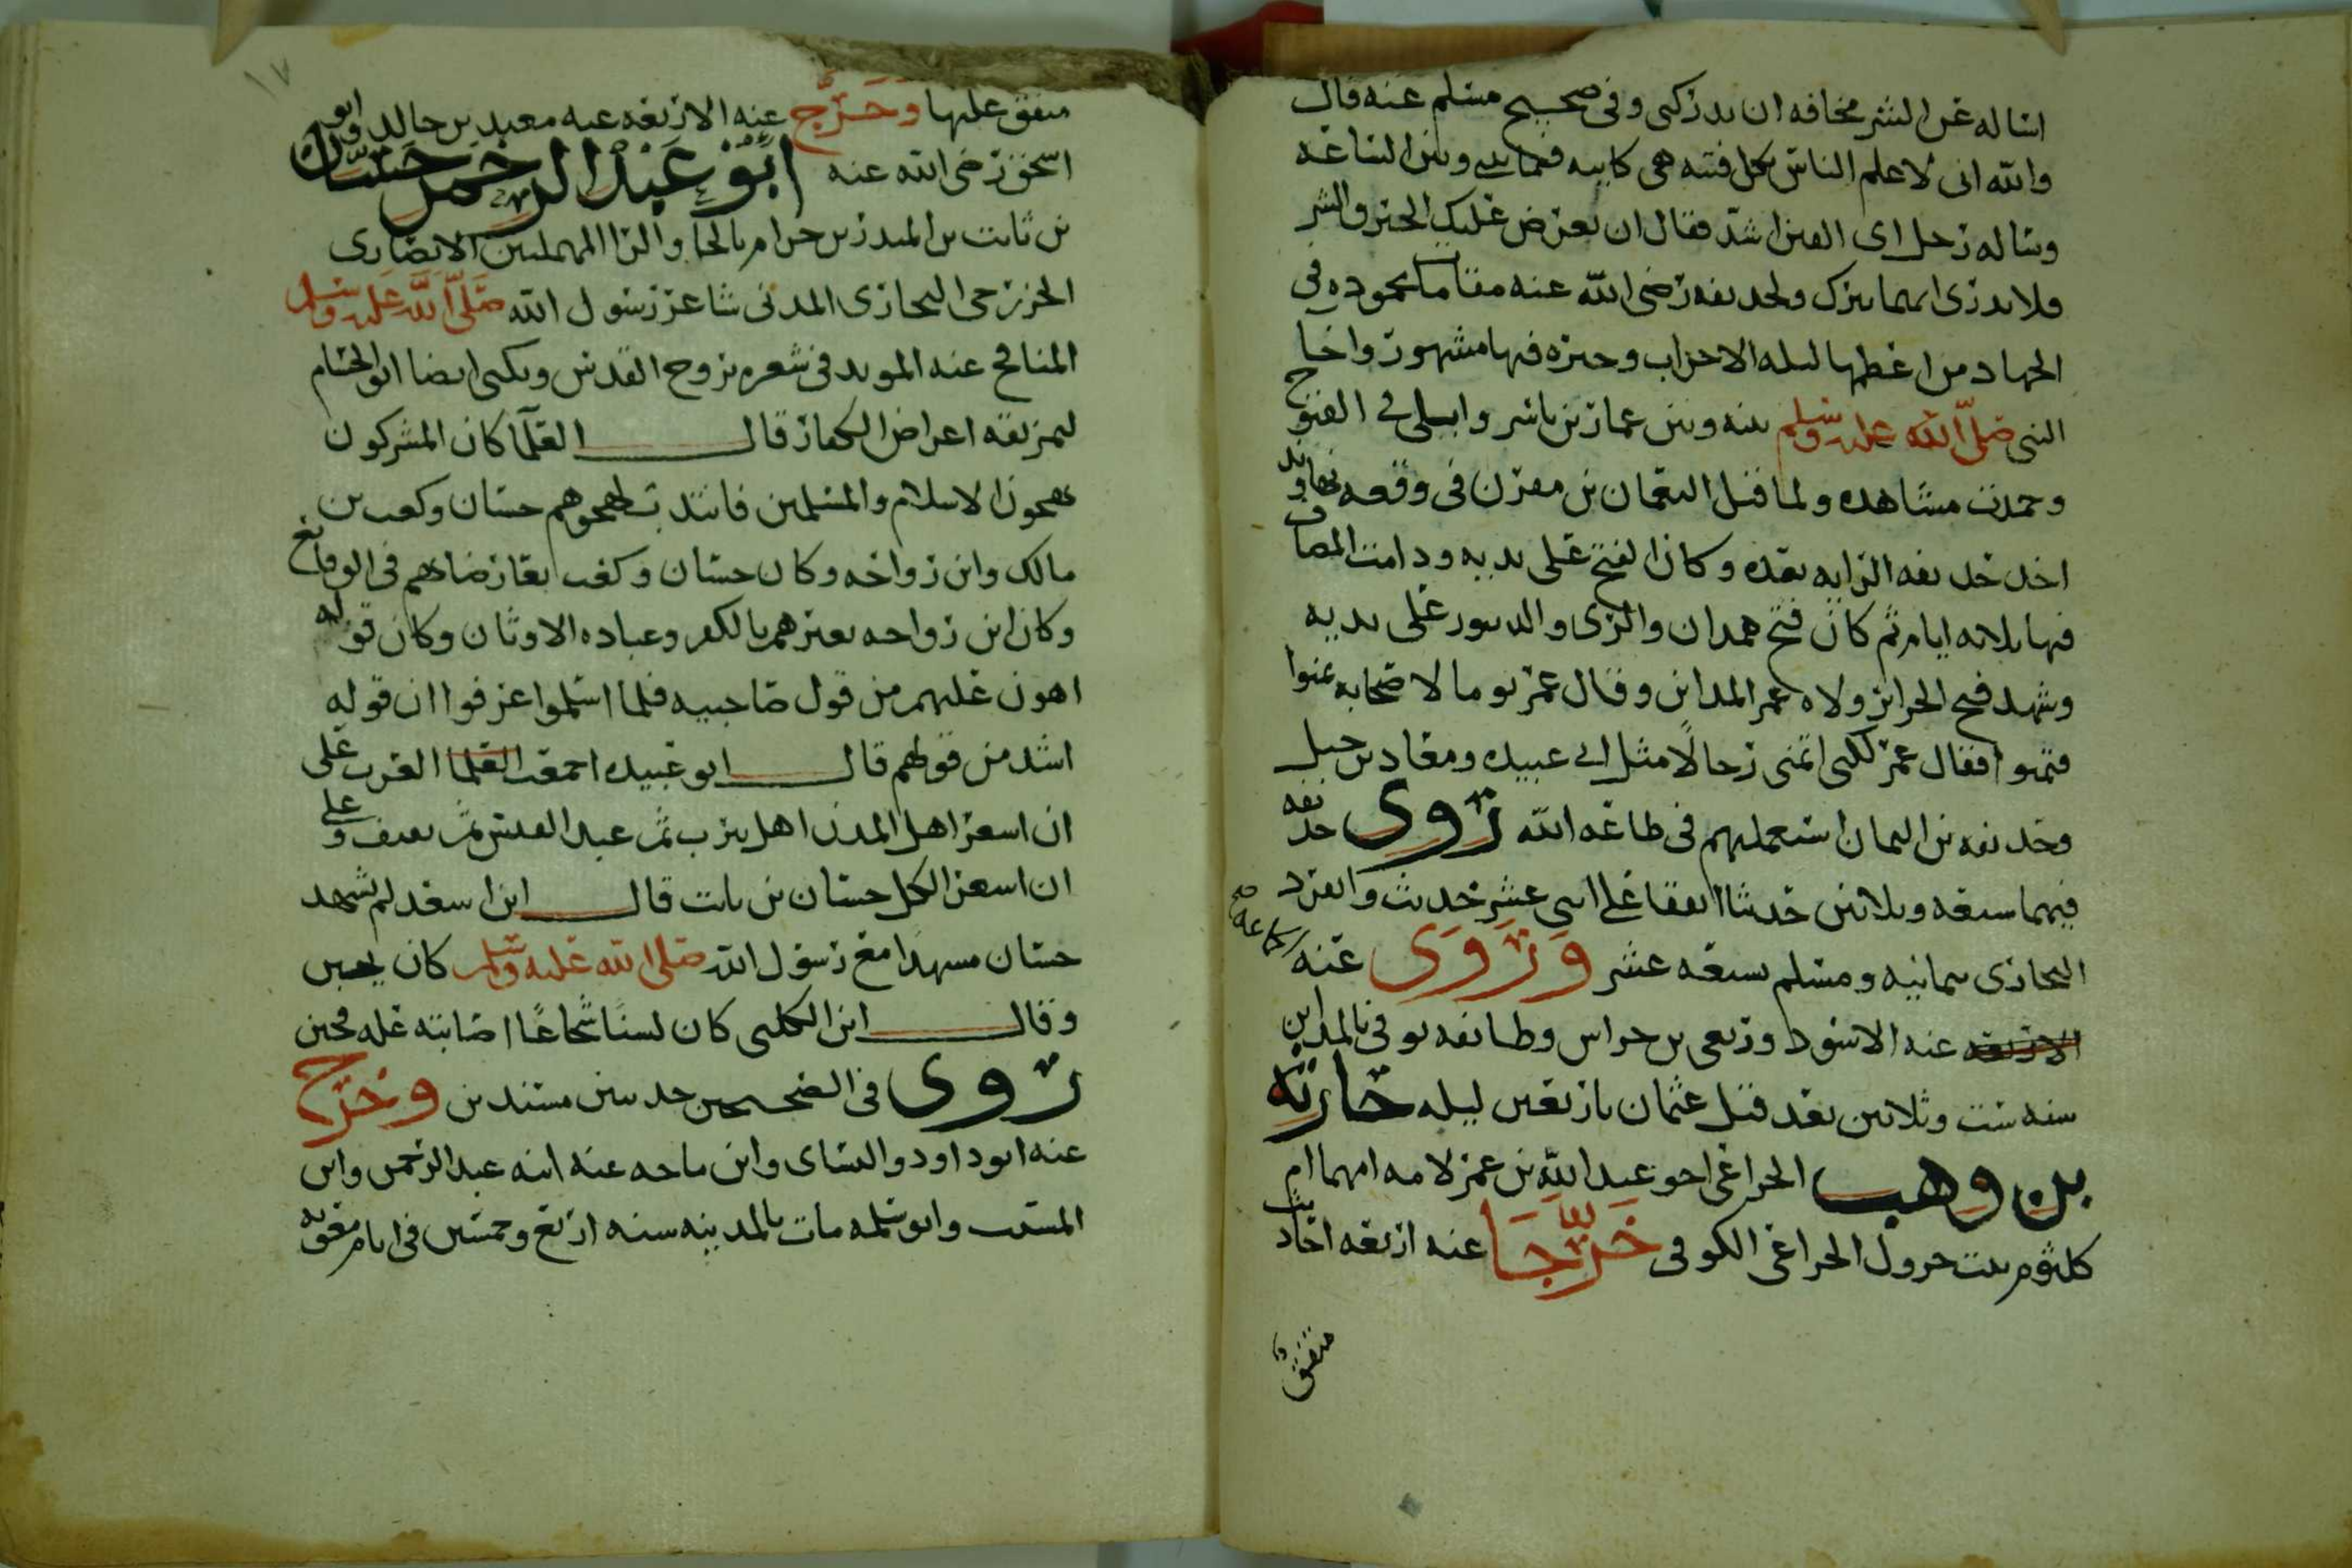 اساله عن الشر مخافه ان يدركني وفي صحيح مسلم عنه قال
والله اني لاعلم الناس بكل فتنه هي كاينه فيما بيني وبين الساعه
وساله رجل اي الفتن اشد فقال ان يعرض عليك الخير والشر
فلا تدري ايهما تترك ولحذيفه رضي الله عنه مقامات محموده في
الجهاد من اعظمها ليله الاحزاب وخبره فيها مشهور واخا
النبي صلى الله عليه وسلم بينه وبين عمار بن ياسر وابلى في الفتوح
وحمدت مشاهده ولما قتل النعمان بن مقرن في وقعه نهاوند
اخذ حذيفه الرايه بعده وكان الفتح على يديه ودامت المصاف
فيها ثلاثه ايام ثم كان فتح همدان والري والدينور على يديه
وشهد فتح الجزائر ولاه عمر المداين وقال عمر يوما لاصحابه تمنوا
فتمنوا فقال عمر لكني اتمنى رجالا مثل ابي عبيده ومعاذ بن جبل
وحذيفه بن اليمان استعملهم في طاعه الله روى حذيفه
فيهما سبعه وثلاثين حديثا اتفقا على اثني عشر حديث وانفرد
البخاري بثمانيه ومسلم بسبعه عشر وروى عنه الجماعه صح
الاربعه عنه الاسود وربعي بن حراش وطايفه توفي بالمداين
سنه ست وثلاثين بعد قتل عثمان باربعين ليله حارثه
بن وهب الخزاعي اخو عبيد الله بن عمر لامه امهما ام
كلثوم بنت جرول الخزاعي الكوفي خرجا عنه اربعه احاديث
متفق
١٧
متفق عليها وخرج عنه الاربعه عنه معبد بن خالد وابو
اسحق رضي الله عنه ابو عبد الرحمن حسان
بن ثابت بن المنذر بن حرام بالحا والرا المهملتين الانصاري
الخزرجي النجاري المدني شاعر رسول الله صلى الله عليه وسلم
المنافح عنه المويد في شعره بروح القدس ويكنى ايضا ابو الحسام
لتمزيقه اعراض الكفار قال العلما كان المشركون
يهجون الاسلام والمسلمين فانتدب لهجوهم حسان وكعب بن
مالك وابن رواحه وكان حسان وكعب يعارضاهم في الوقايع
وكان ابن رواحه يعيرهم بالكفر وعباده الاوثان وكان قوله
اهون عليهم من قول صاحبيه فلما اسلموا عرفوا ان قوله
اشد من قولهم قال ابو عبيده اجمعت العلما العرب على
ان اسعر اهل المدن اهل يثرب ثم عبد القيس ثم ثقيف وعلى
ان اسعر الكل حسان بن ثابت قال ابن اسعد لم يشهد
حسان مشهدا مع رسول الله صلى الله عليه وسلم كان يجبن
وقال ابن الكلبي كان لسنا شجاعا اصابته عله فجبن
روى في الصحيحين حديثين مسندين وخرج
عنه ابو داود والنساي وابن ماجه عنه ابنه عبد الرحمن وابن
المسيب وابو سلمه مات بالمدينه سنه اربع وخمسين في ايام معويه